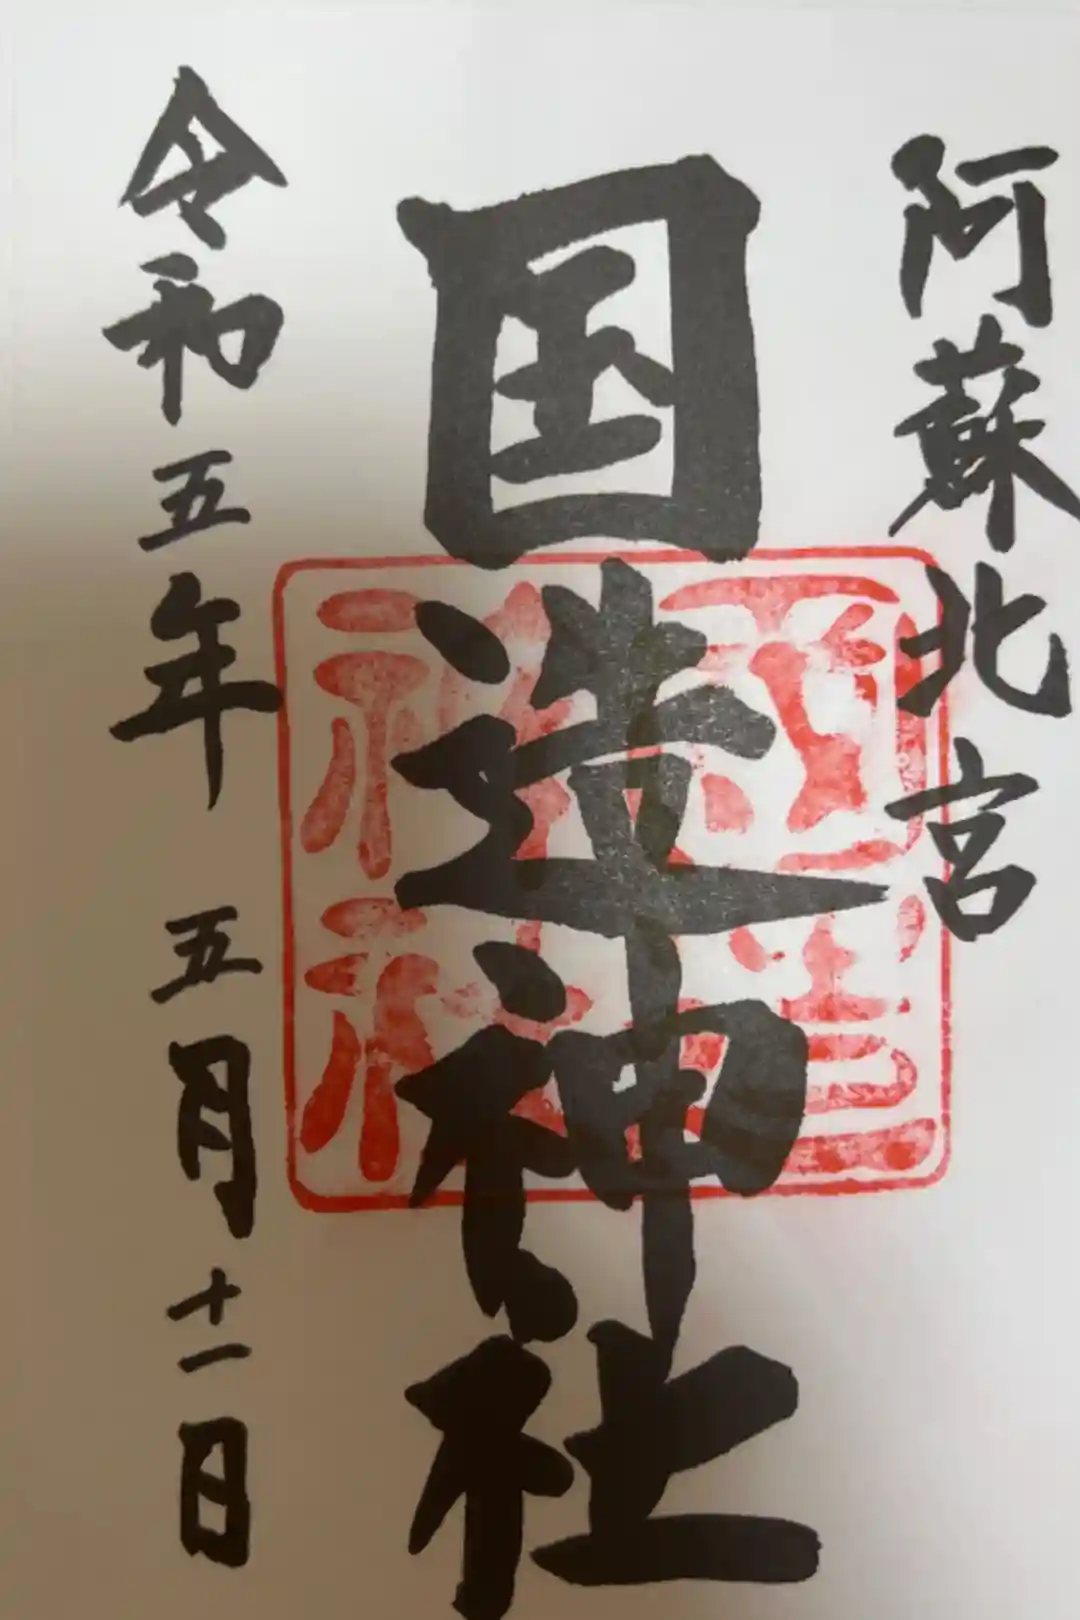 阿蘇北宮
国造神社
国造
神社
令和五年 五月十一日